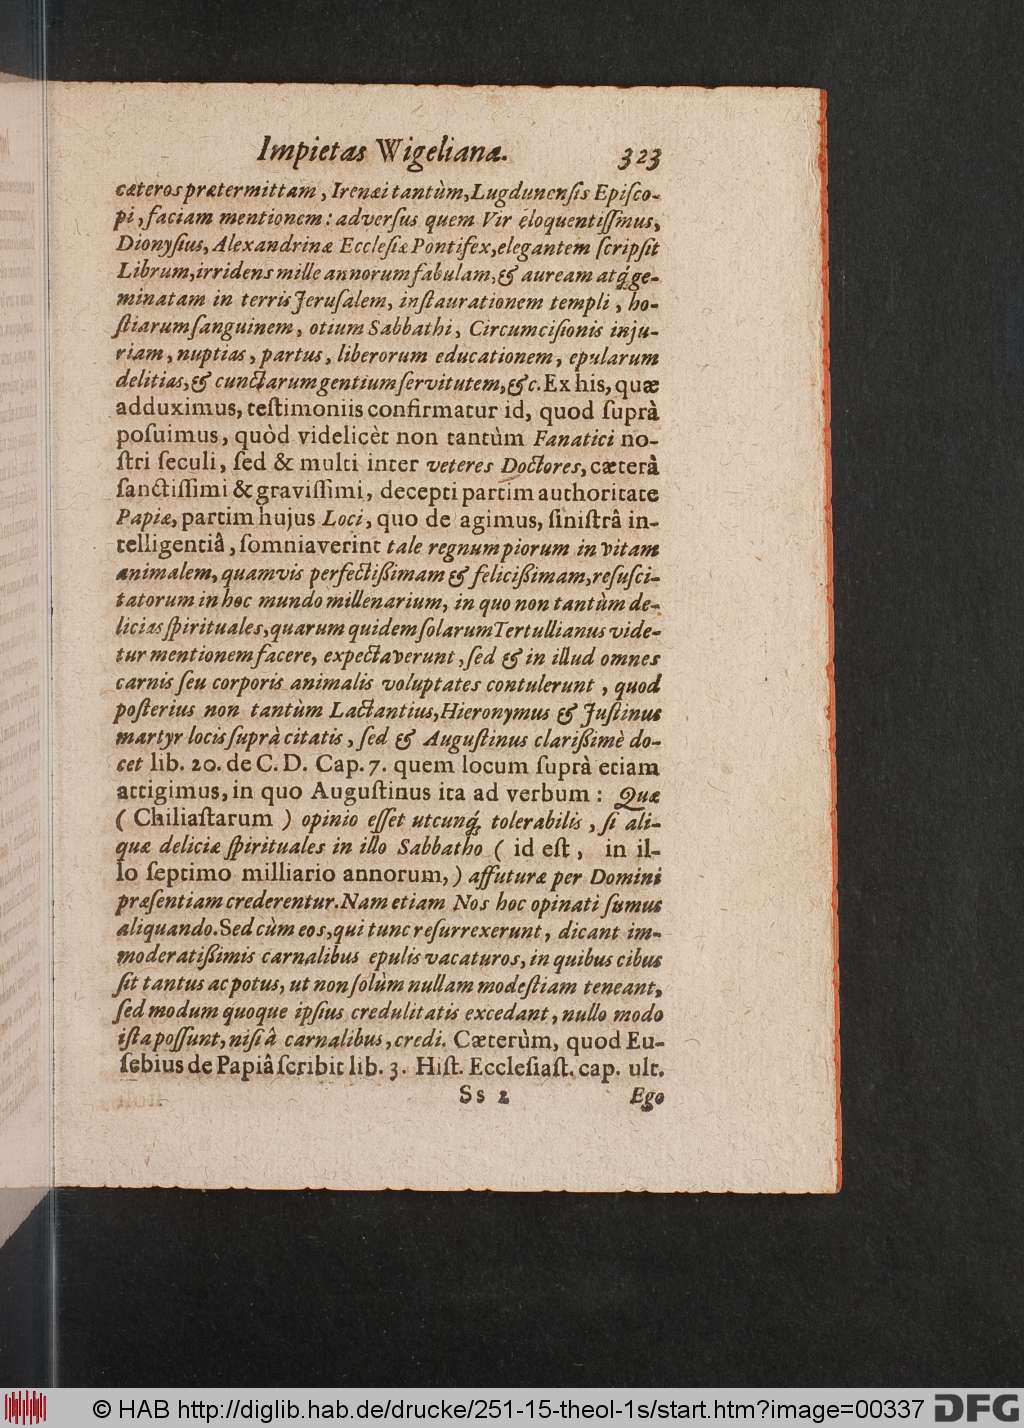 Impietas Wigeliana. 323
cæteros prætermittam, Irenæi tantùm, Lugdunenſis Epiſco-
pi, faciam mentionem: adverſus quem Vir eloquentiſſimus,
Dionyſius, Alexandrinæ Eccleſiæ Pontifex, elegantem ſcripſit
Librum, irridens mille annorum fabulam, & auream atq́; ge-
minatam in terris Jeruſalem, inſtaurationem templi, ho-
ſtiarum ſanguinem, otium Sabbathi, Circumciſionis inju-
riam, nuptias, partus, liberorum educationem, epularum
delitias, & cunctarum gentium ſervitutem, &c. Ex his, quæ
adduximus, teſtimoniis confirmatur id, quod ſuprà
poſuimus, quòd videlicèt non tantùm Fanatici no-
ſtri ſeculi, ſed & multi inter veteres Doctores, cæterà
ſanctiſſimi & graviſſimi, decepti partim authoritate
Papiæ, partim hujus Loci, quo de agimus, ſiniſtrâ in-
telligentiâ, ſomniaverint tale regnum piorum in vitam
animalem, quamvis perfectißimam & feliciſſimam, reſuſci-
tatorum in hoc mundo millenarium, in quo non tantùm de-
licias ſpirituales, quarum quidem ſolarum Tertullianus vide-
tur mentionem facere, expectaverunt, ſed & in illud omnes
carnis ſeu corporis animalis voluptates contulerunt, quod
poſterius non tantùm Lactantius, Hieronymus & Juſtinus
martyr locis ſuprà citatis, ſed & Auguſtinus clarißimè do-
cet lib. 20. de C. D. Cap. 7. quem locum ſuprà etiam
attigimus, in quo Auguſtinus ita ad verbum: Quæ
( Chiliaſtarum ) opinio eſſet utcunq́; tolerabilis, ſi ali-
quæ deliciæ ſpirituales in illo Sabbatho ( id eſt, in il-
lo ſeptimo milliario annorum, ) affuturæ per Domini
præſentiam crederentur. Nam etiam Nos hoc opinati ſumus
aliquando. Sed cùm eos, qui tunc reſurrexerunt, dicant im-
moderatißimis carnalibus epulis vacaturos, in quibus cibus
ſit tantus ac potus, ut non ſolùm nullam modeſtiam teneant,
ſed modum quoque ipſius credulitatis excedant, nullo modo
iſta poſſunt, niſi â carnalibus, credi. Cæterùm, quod Eu-
ſebius de Papiâ ſcribit lib. 3. Hiſt. Eccleſiaſt. cap. ult.
Ss 2 Ego
© HAB http://diglib.hab.de/drucke/251-15-theol-1s/start.htm?image=00337 DFG